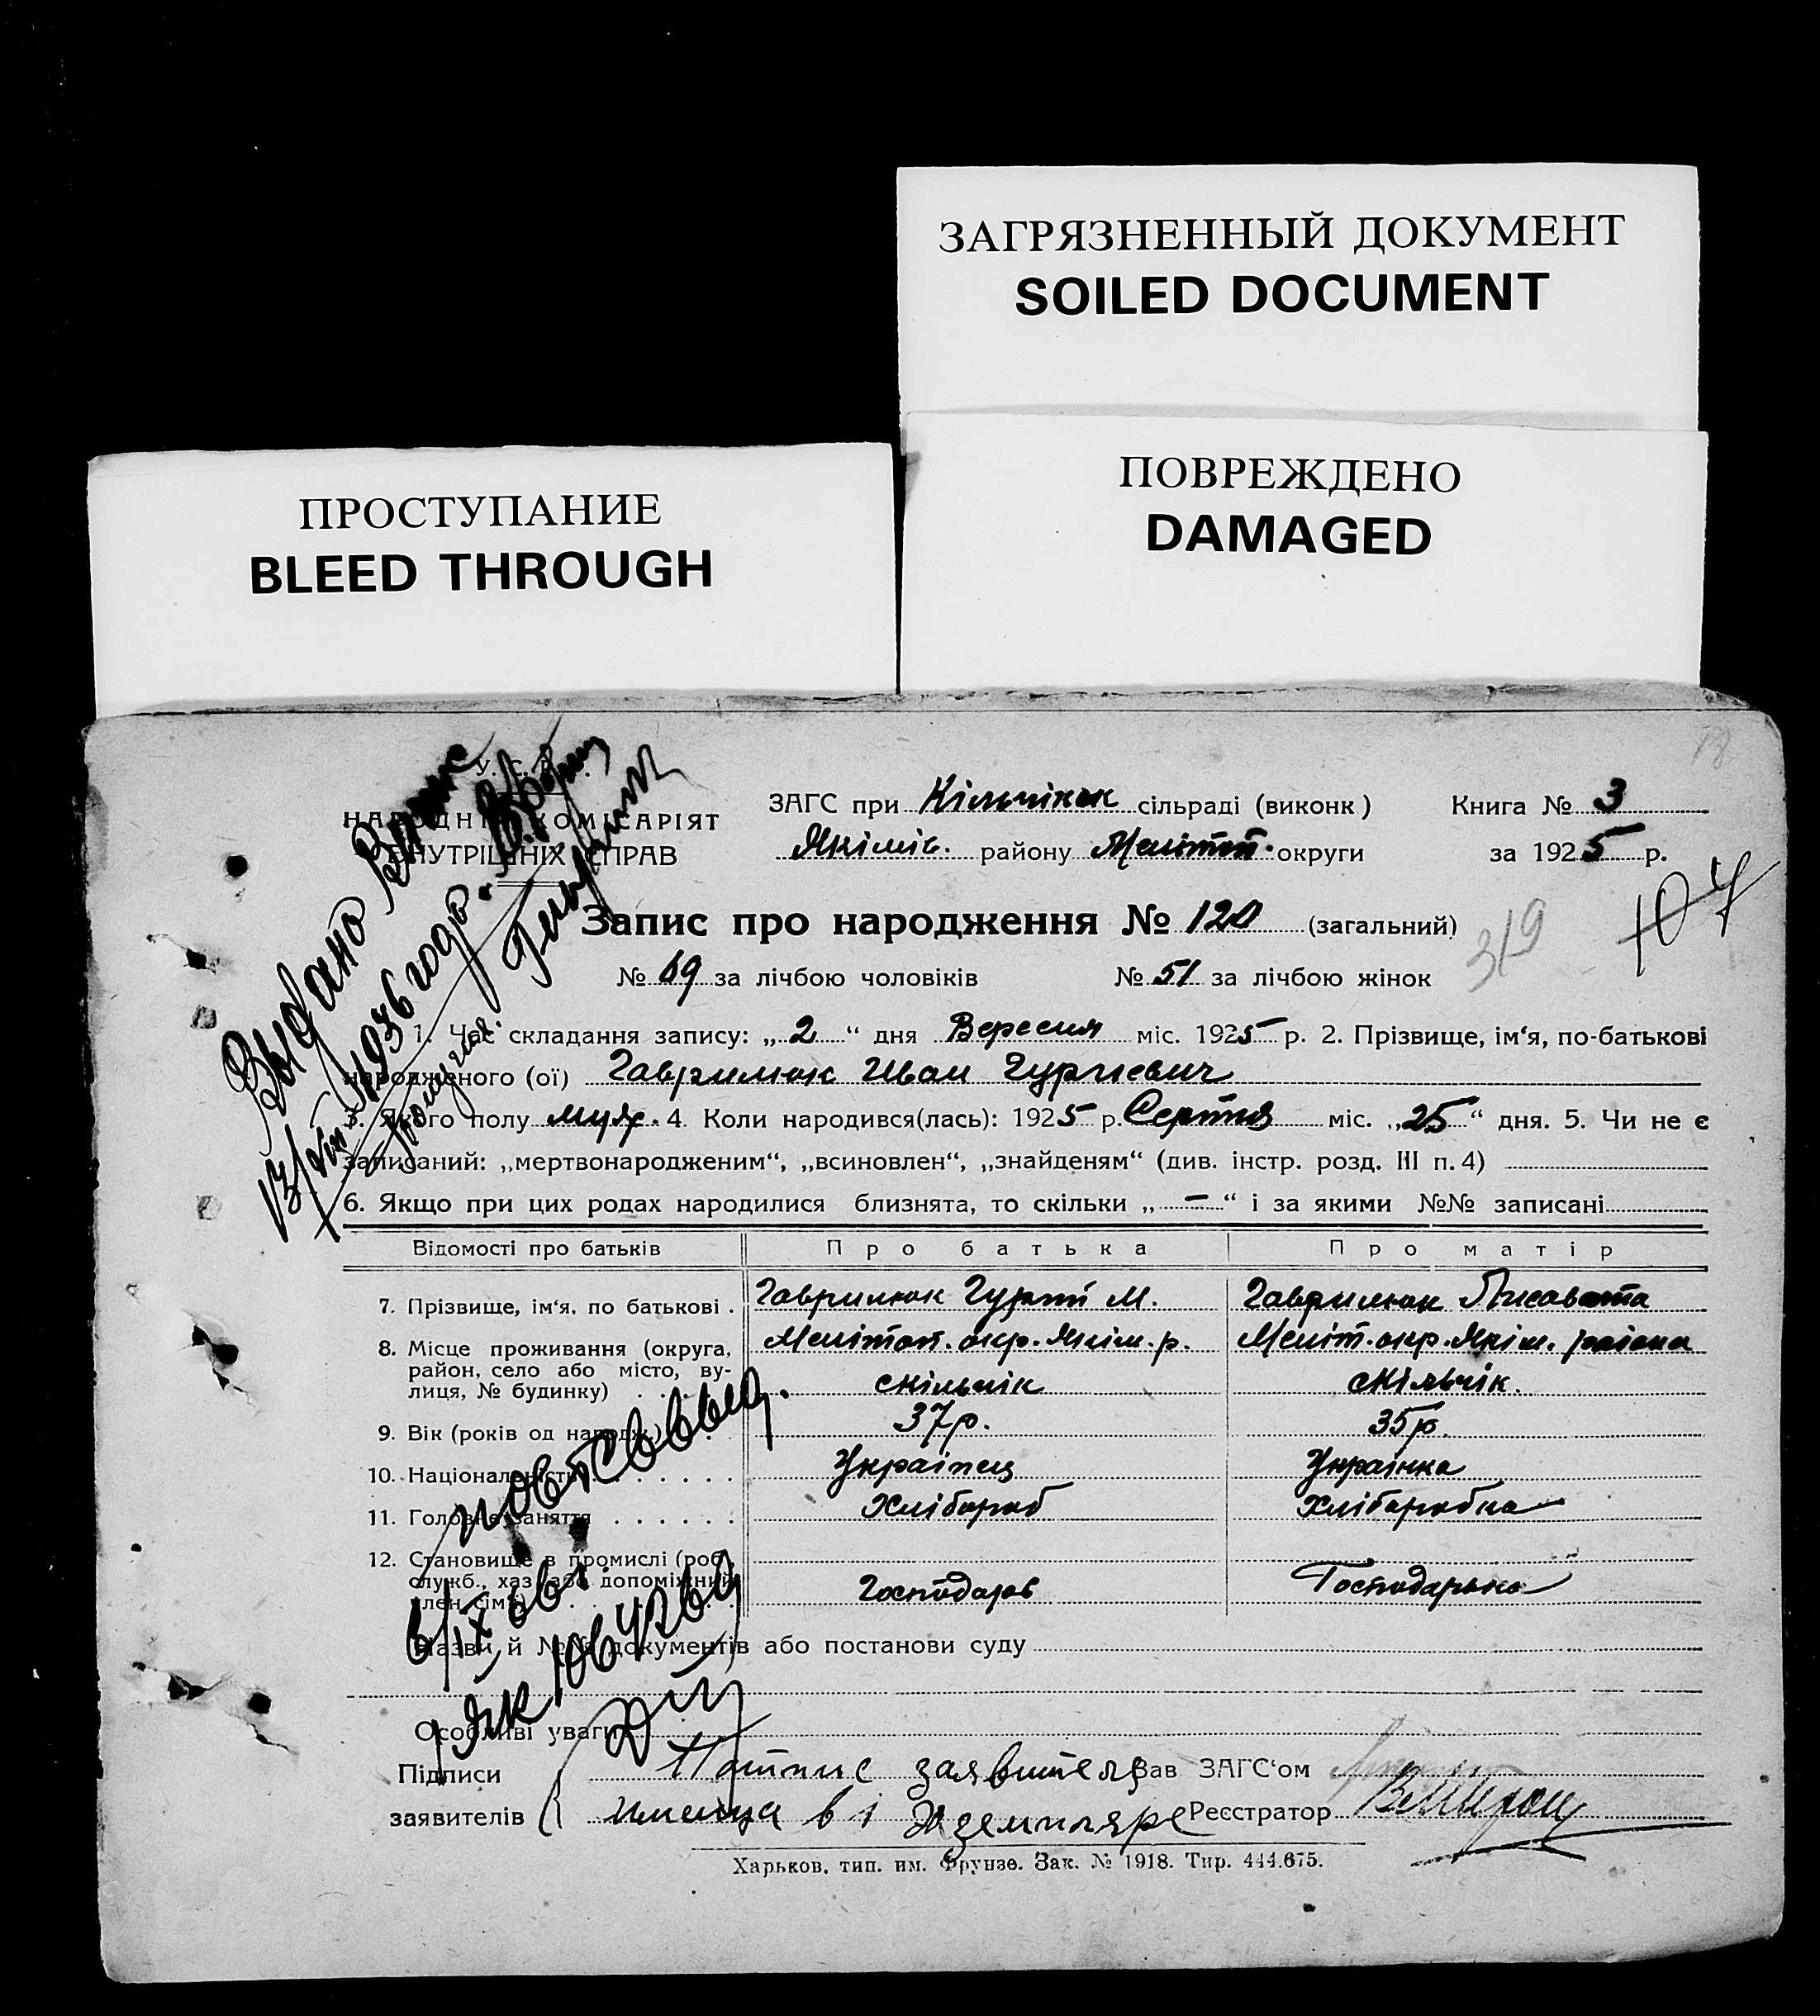 ЗАГРЯЗНЕННЫЙ ДОКУМЕНТ
SOILED DOCUMENT
ПОВРЕЖДЕНО
DAMAGED
ПРОСТУПАНИЕ
BLEED THROUGH
У. С.
НАРОДНІЙ КОМІСАРІЯТ
ВНУТРІШНІХ СПРАВ
ЗАГС при сільраді (виконк) Книга № 3
Якімів. району Мелітоп. округи за 1925 р.
Запис про народження № 120 (загальний)
319
107
№ 69 за лічбою чоловіків № 51 за лічбою жінок
Выдано
1936 года
1. Час складання запису: „2“ дня Вересня міс. 1925 р. 2. Прізвище, ім‘я, по-батькові
народженого (ої) Гаврилюк Иван Гургіевич
3. Якого полу муж. 4. Коли народився(лась): 1925 р. Серпня міс. „25“ дня. 5. Чи не є
записаний: „мертвонародженим“, „всиновлен“, „знайденям“ (див. інстр. розд. III п. 4)
6. Якщо при цих родах народилися близнята, то скільки „—“ і за якими №№ записані
Відомості про батьків Про батька Про матір
7. Прізвище, ім‘я, по батькові . Гаврилюк Гургій М. Гаврилюк Лисавета
8. Місце проживання (округа, Мелітоп. окр. Якім. р. Меліт. окр. Якім. району
район, село або місто, ву-
лиця, № будинку) скільчік скільчік.
9. Вік (років од народж.) 37 р. 35 р.
10. Національність Українец Українка
11. Головне заняття Хлібороб Хліборобка
12. Становище в промислі (роб.,
служб., хаз. або допоміжний
член сім‘ї) Господарь Господарька
Назви й №№ документів або постанови суду
Особливі уваги
Підписи Потпис заявителя Зав ЗАГС‘ом
заявителів имеица в 1 Экземпляре Реєстратор
Харьков, тип. им. Фрунзе. Зак. № 1918. Тир. 444.675.